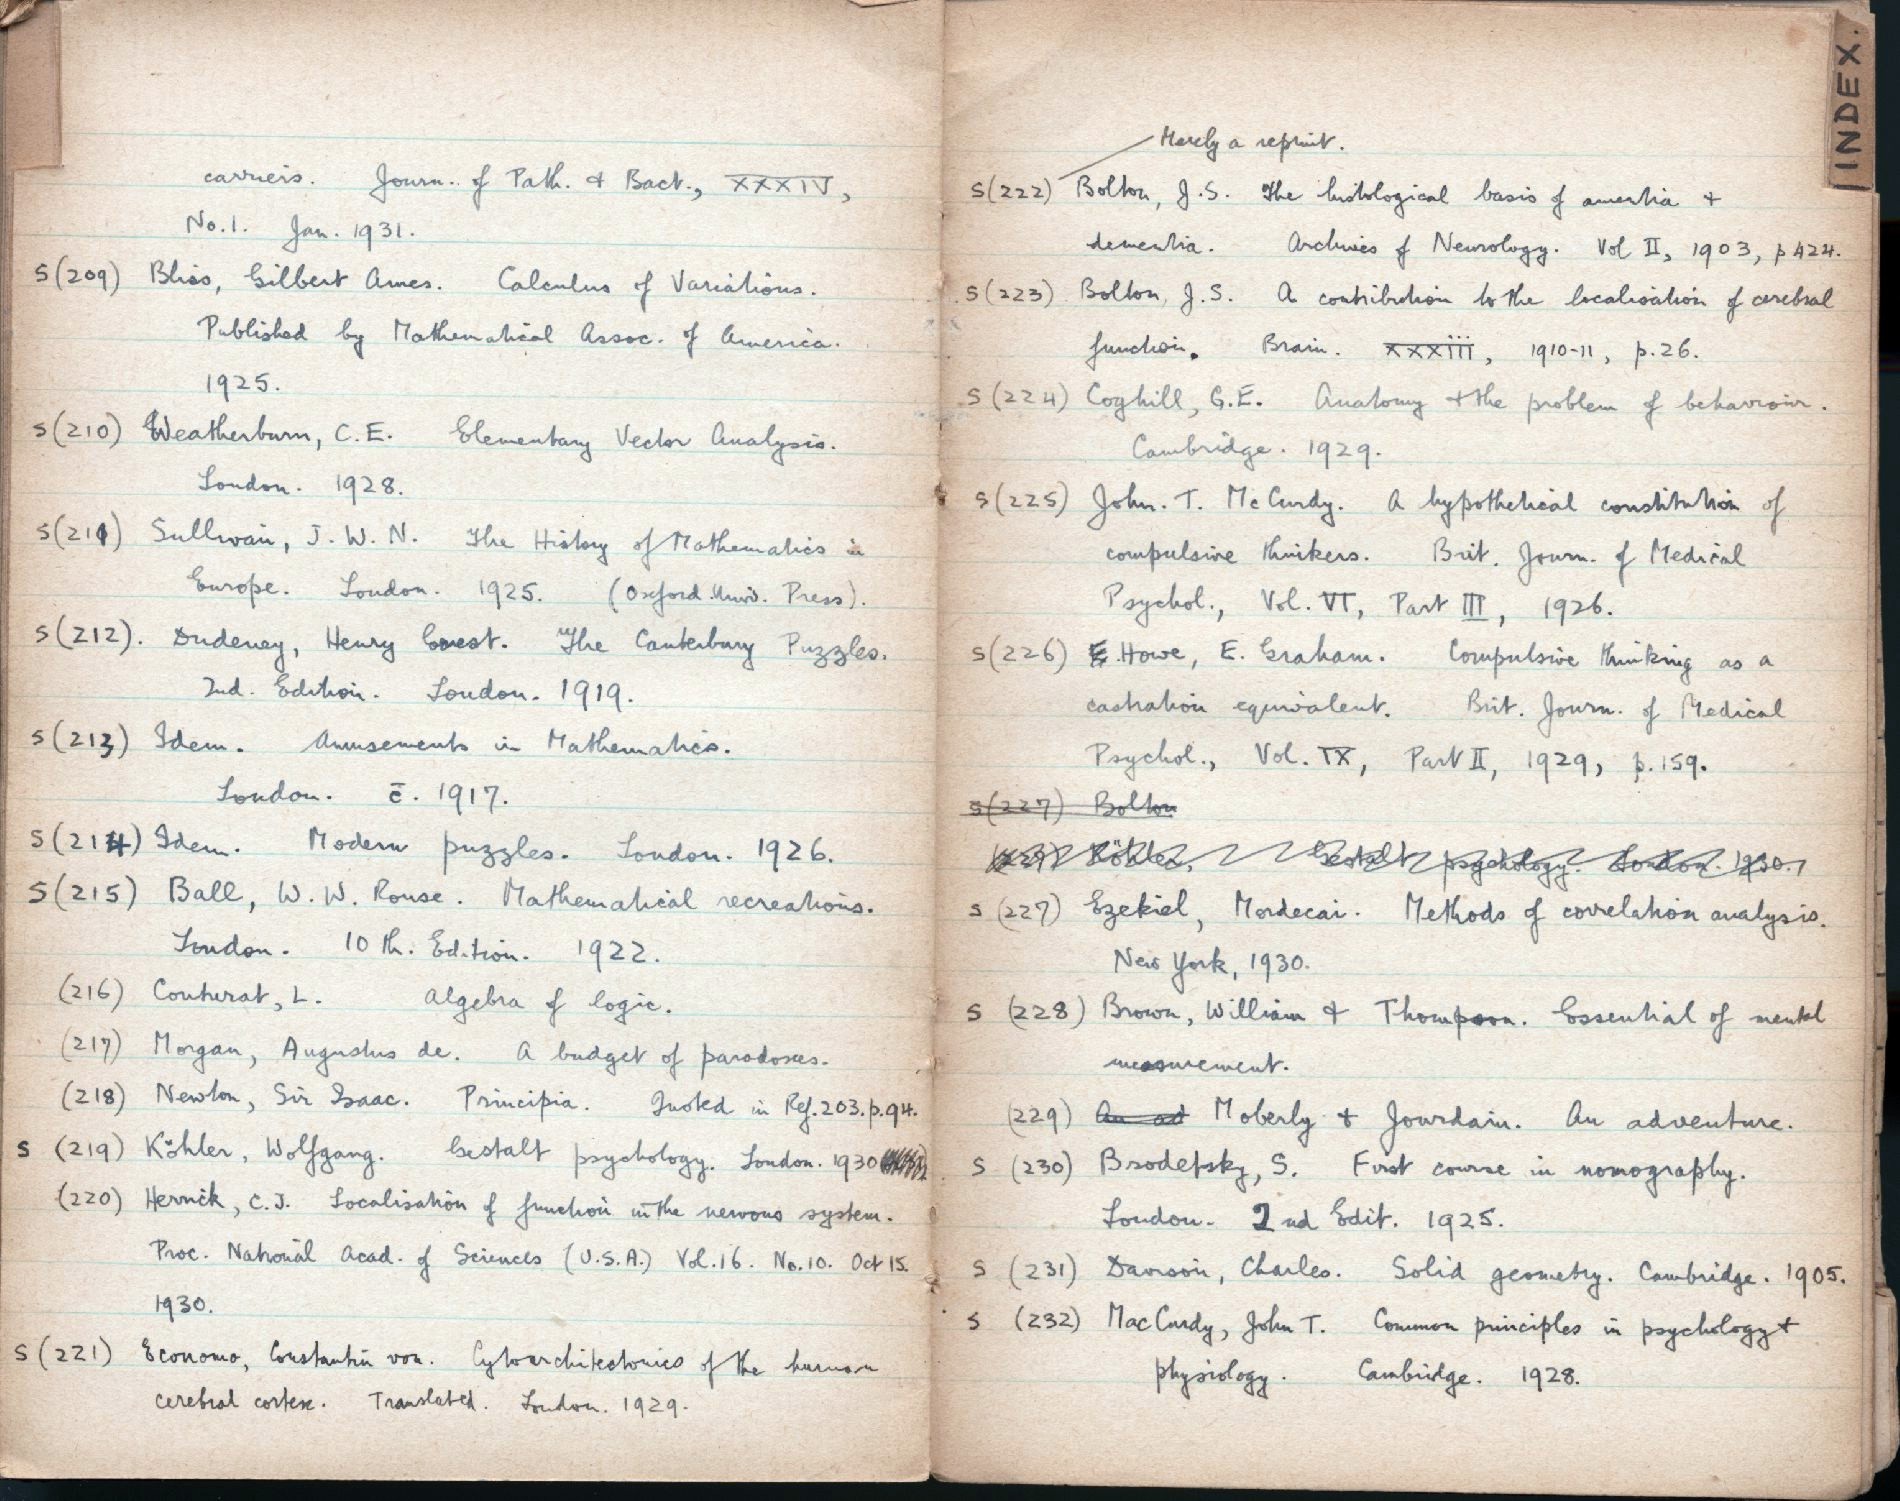 carriers. Journ. of Path. & Bact., XXXIV,
No.1. Jan. 1931.
S(209) Bliss, Gilbert Ames. Calculus of Variations.
Published by Mathematical Assoc. of America.
1925.
S(210) Weatherburn, C.E. Elementary Vector Analysis.
London. 1928.
S(211) Sullivan, J.W.N. The History of Mathematics in
Europe. London. 1925. (Oxford Univ. Press).
S(212). Dudeney, Henry Ernest. The Canterbury Puzzles.
2nd. Edition. London. 1919.
S(213) Idem. Amusements in Mathematics.
London. c̄. 1917.
S(214) Idem. Modern puzzles. London. 1926.
S(215) Ball, W.W. Rouse. Mathematical recreations.
London. 10th. Edition. 1922.
(216) Couturat, L. Algebra of logic.
(217) Morgan, Augustus de. A budget of paradoxes.
(218) Newton, Sir Isaac. Principia. Quoted in Ref.203.p.94.
S (219) Köhler, Wolfgang. Gestalt psychology. London. 1930
(220) Herrick, C.J. Localisation of function in the nervous system.
Proc. National Acad. of Sciences (U.S.A.) Vol.16. No.10. Oct 15.
1930.
S(221) Economo, Constantin von. Cytoarchitectonics of the human
cerebral cortex. Translated. London. 1929.
INDEX.
Merely a reprint.
S(222) Bolton, J.S. The histological basis of amentia &
dementia. Archives of Neurology. Vol II, 1903, p424.
S(223) Bolton, J.S. A contribution to the localisation of cerebral
function. Brain. XXXIII, 1910-11, p.26.
S(224) Coghill, G.E. Anatomy & the problem of behaviour.
Cambridge. 1929.
S(225) John. T. McCurdy. A hypothetical constitution of
compulsive thinkers. Brit. Journ. of Medical
Psychol., Vol. VI, Part III, 1926.
S(226) Howe, E. Graham. Compulsive thinking as a
castration equivalent. Brit. Journ. of Medical
Psychol., Vol. IX, Part II, 1929, p.159.
S(227) Bolton
Köhler, Gestalt psychology. London. 1930.
S (227) Ezekiel, Mordecai. Methods of correlation analysis.
New York, 1930.
S (228) Brown, William & Thompson. Essential of mental
measurement.
(229) An ad Moberly & Jourdain. An adventure.
S (230) Brodetsky, S. First course in nomography.
London. 2nd Edit. 1925.
S (231) Davison, Charles. Solid geometry. Cambridge. 1905.
S (232) MacCurdy, John T. Common principles in psychology &
physiology. Cambridge. 1928.